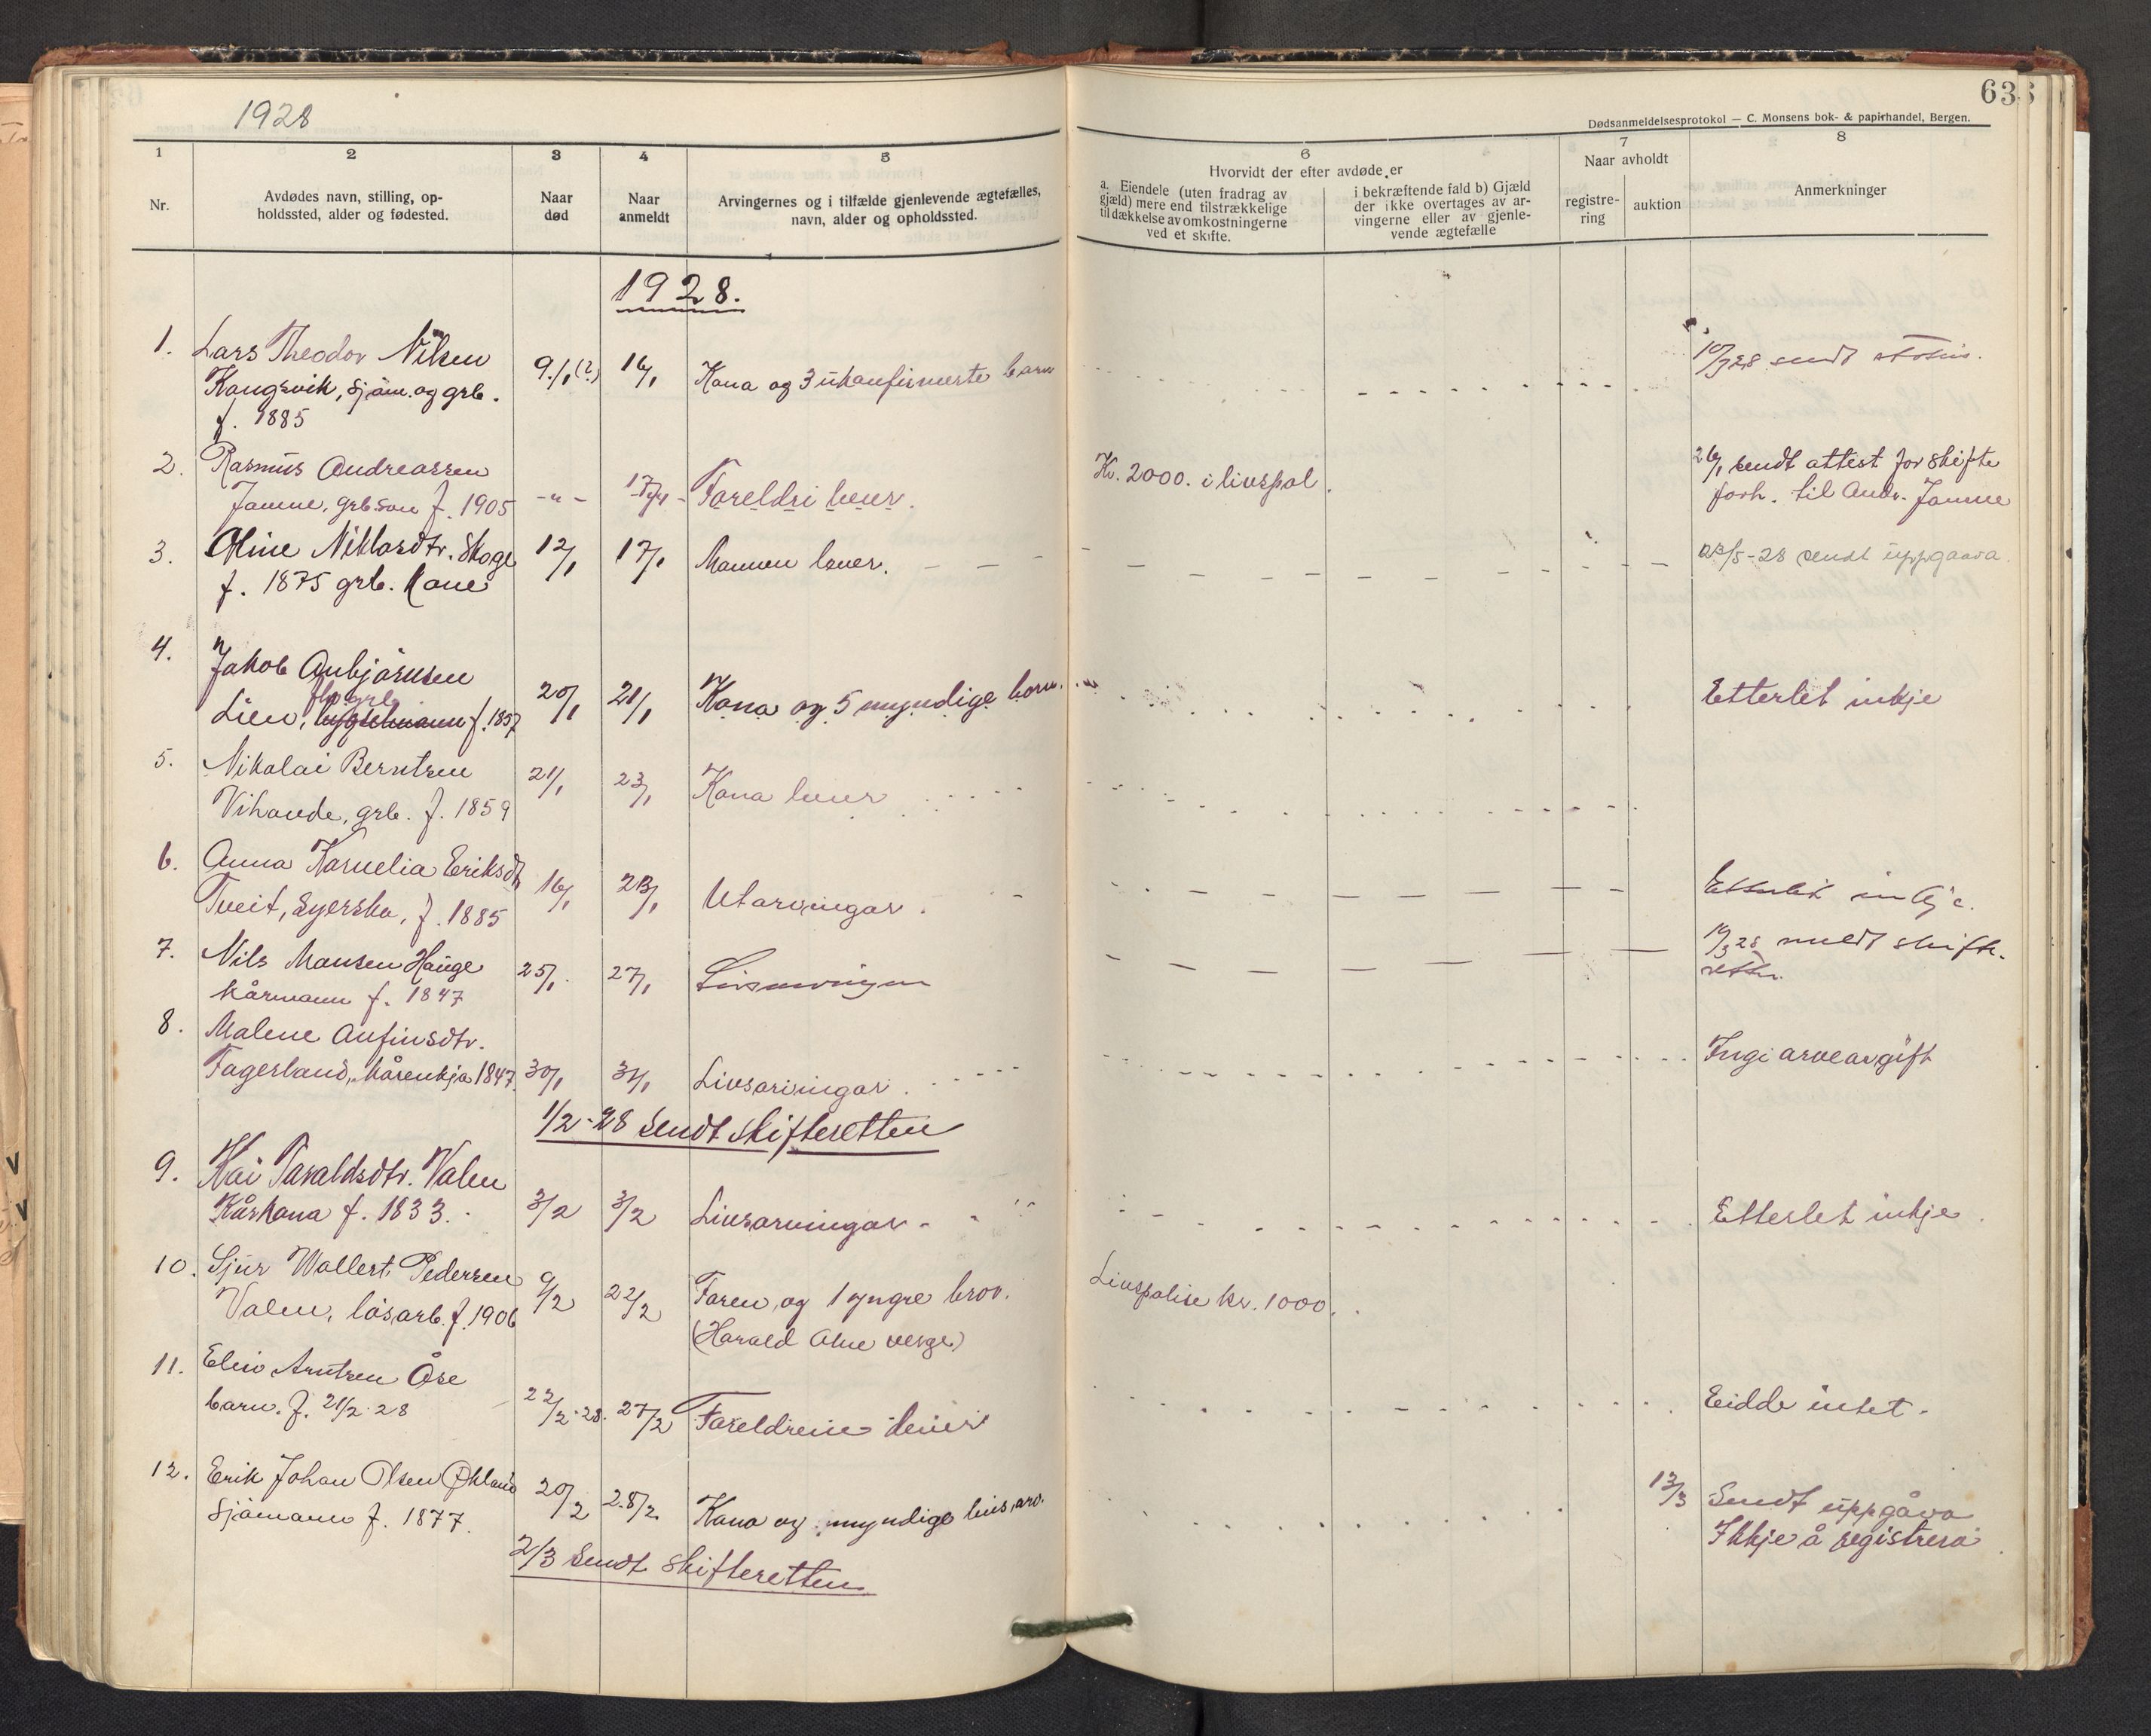 1928
63
Dødsanmeldelsesprotokol — C. Monsens bok- & papirhandel, Bergen.
1
2
3
4
5
6
7
8
Nr.
Avdødes navn, stilling, op-
holdssted, alder og fødested.
Naar
død
Naar
anmeldt
Arvingernes og i tilfælde gjenlevende ægtefælles,
navn, alder og opholdssted.
Hvorvidt der efter avdøde er
a. Eiendele (uten fradrag av
gjæld) mere end tilstrækkelige
til dækkelse av omkostningerne
ved et skifte.
i bekræftende fald b) Gjæld
der ikke overtages av ar-
vingerne eller av gjenle-
vende ægtefælle
Naar avholdt
registre-
ring
auktion
Anmerkninger
1928.
1. Lars Theodor Nilsen
Kongsvik, sjøm. og grb.
f. 1885
9/1 (?) 16/1 Kona og 3 ukonfirmerte barn
sendt
2. Rasmus Andreassen
Jamne, grb. son f. 1905 -"- 17/1 - Foreldri lever.
Kr. 2000. i livspol.
26/1 sendt attest for skifte
forh. til Andr. Jamne
3. Oline Niklasdtr. Skoge
f. 1875 grb. kone
12/1 17/1 Mannen lever.
/5-28 sendt uppgaava
4. Jakob Anbjørnsen
Lien, f. 1857
20/1 21/1 Kona og 5 myndige born.
Etterlet inkje
5. Nikolai Berntsen
Vihovde, grb. f. 1859
21/1 23/1 Kona lever
6. Anna Kornelia Eriksdt
Tveit, syerska, f. 1885
16/1 23/1 Utarvingar.
Etterlet inkje.
7. Nils Monsen Hauge
kårmann f. 1847
25/1. 27/1 Livsarvingar
28 meldt skifte-
retten.
8. Malene Anfinsdtr.
Fagerland, kårenkja 1847. 30/1 31/1 Livsarvingar.
Ingi arveavgift
1/2-28 sendt skifteretten
9. Kari Tavaldsdtr. Valen
Kårkona f. 1833.
3/2 3/2 Livsarvingar
Etterlet inkje
10. Sjur Wollert Pedersen
Valen, løsarb. f. 1906
9/2 22/2 Faren og 1 yngre bror.
(Harald Alne verge)
Livspolise kr. 1000.
11. Arntsen Åse
barn. f. 21/2-28
22/2-28. 27/2 Foreldrene lever
Eidde intet.
12. Erik Johan Olsen Økland
Sjømann f. 1877.
20/2 28/2 Kona og myndige livsarv.
13/3 Sendt uppgåva
Ikkje å registrera
2/3 Sendt skifteretten